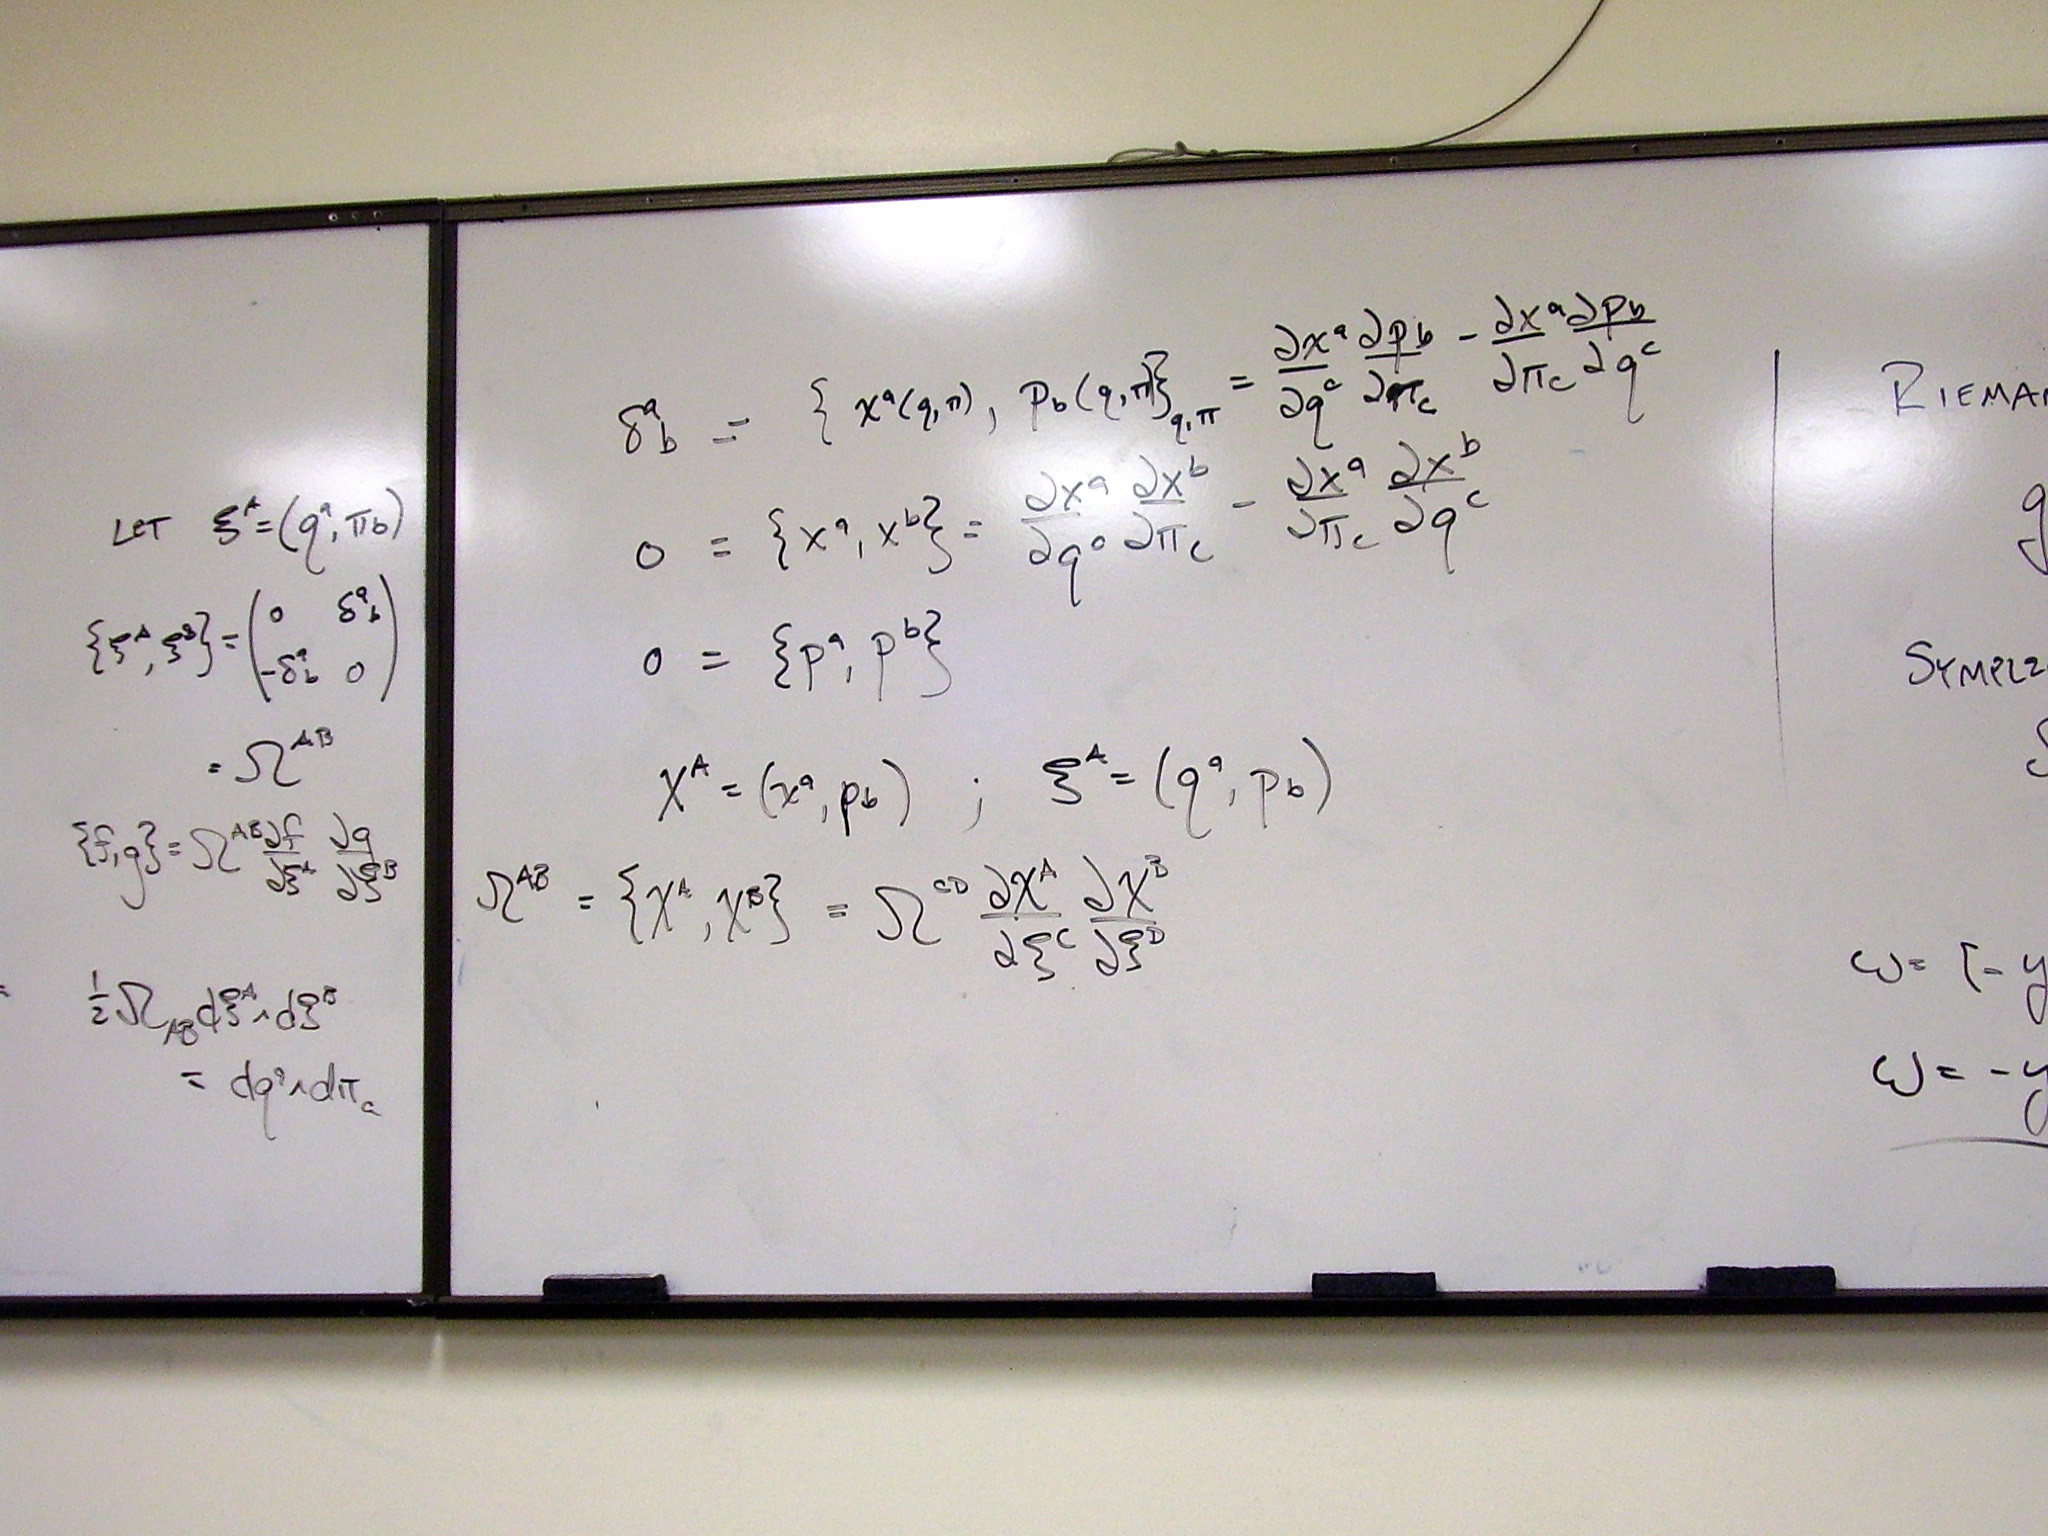 LET ξ^A = (q^a, π_b)
{ξ^A, ξ^B} = ( 0 δ^a_b
-δ^a_b 0 )
= Ω^{AB}
{f,g} = Ω^{AB} ∂f/∂ξ^A ∂g/∂ξ^B
= ½ Ω_{AB} dξ^A ∧ dξ^B
= dq^a ∧ dπ_a
δ^a_b = {x^a(q,π), p_b(q,π)}_{q,π} = ∂x^a/∂q^c ∂p_b/∂π_c - ∂x^a/∂π_c ∂p_b/∂q^c
0 = {x^a, x^b} = ∂x^a/∂q^c ∂x^b/∂π_c - ∂x^a/∂π_c ∂x^b/∂q^c
0 = {p^a, p^b}
χ^A = (x^a, p_b) ; ξ^A = (q^a, p_b)
Ω^{AB} = {χ^A, χ^B} = Ω^{CD} ∂χ^A/∂ξ^C ∂χ^B/∂ξ^D
RIEMA
g
SYMPL
ω = (-y
ω = -y